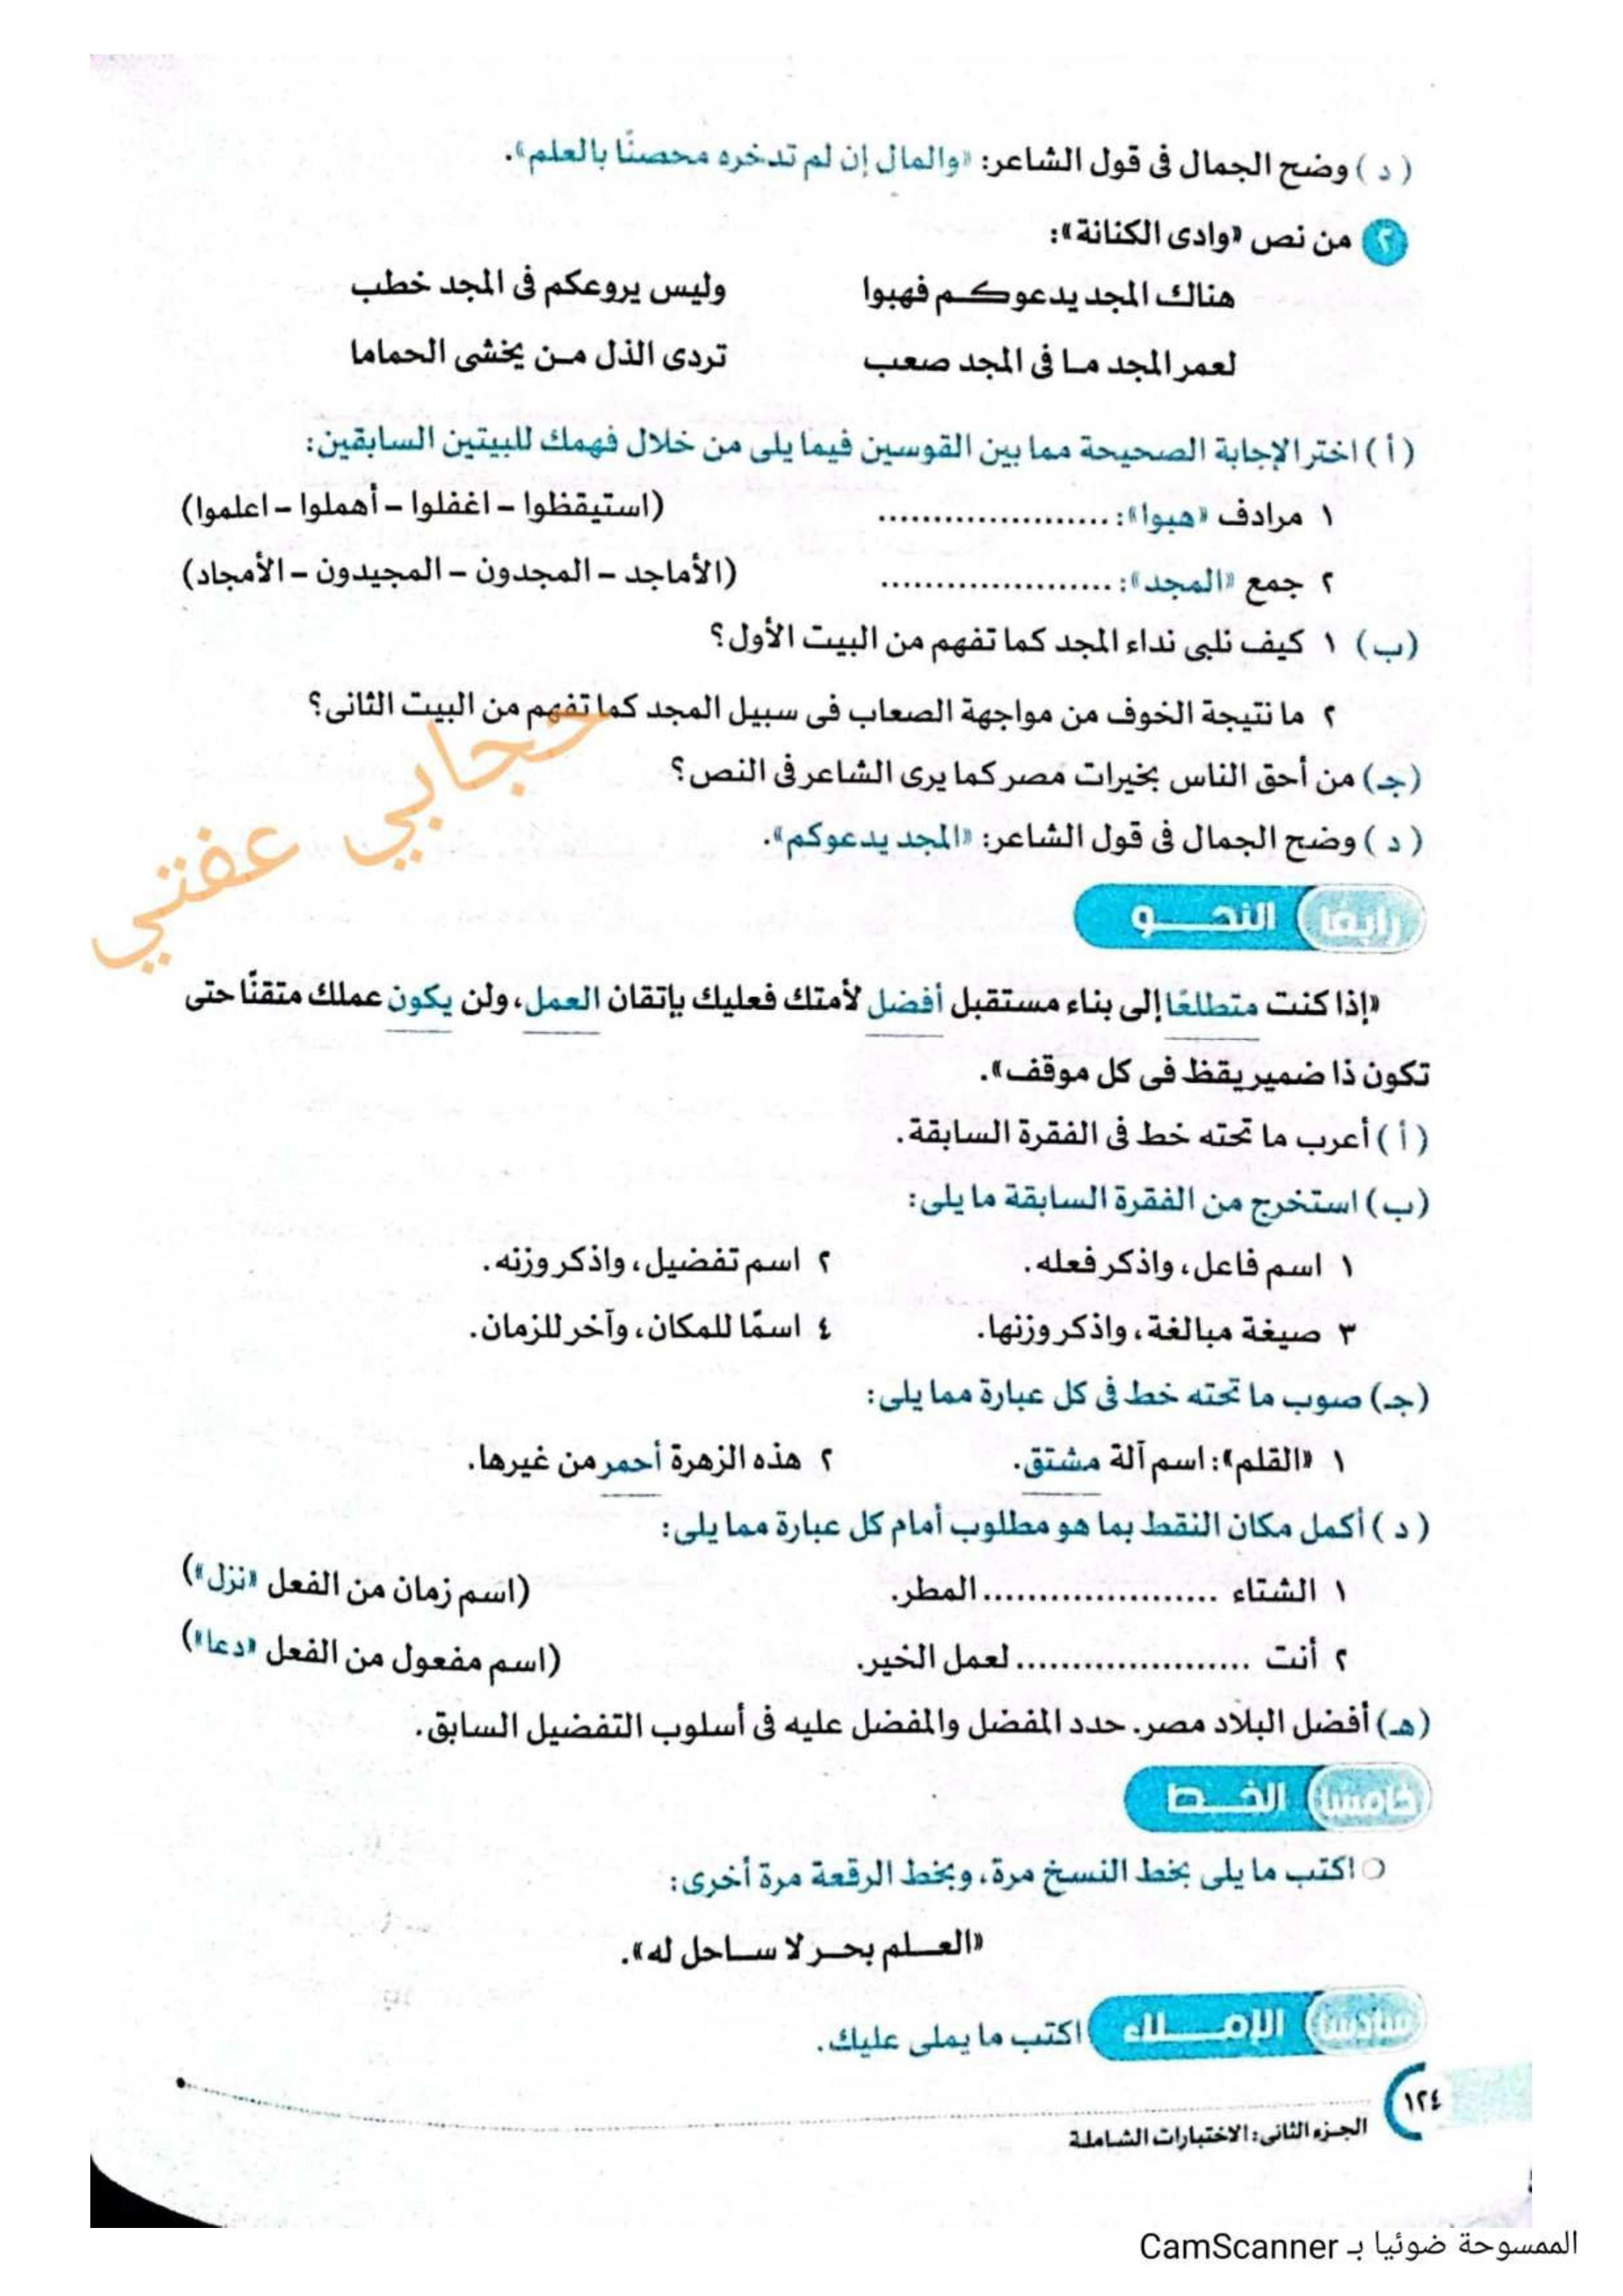 ( د ) وضح الجمال فى قول الشاعر: «والمال إن لم تدخره محصنًا بالعلم».
٢ من نص «وادى الكنانة»:
هناك المجد يدعوكم فهبوا وليس يروعكم فى المجد خطب
لعمر المجد ما فى المجد صعب تردى الذل من يخشى الحماما
( أ ) اختر الإجابة الصحيحة مما بين القوسين فيما يلى من خلال فهمك للبيتين السابقين:
١ مرادف «هبوا»: ..................... (استيقظوا – اغفلوا – أهملوا – اعلموا)
٢ جمع «المجد»: ..................... (الأماجد – المجدون – المجيدون – الأمجاد)
(ب) ١ كيف نلبى نداء المجد كما تفهم من البيت الأول؟
٢ ما نتيجة الخوف من مواجهة الصعاب فى سبيل المجد كما تفهم من البيت الثانى؟
(جـ) من أحق الناس بخيرات مصر كما يرى الشاعر فى النص؟
( د ) وضح الجمال فى قول الشاعر: «المجد يدعوكم».
حجابي عفتي
رابعًا النحو
«إذا كنت متطلعًا إلى بناء مستقبل أفضل لأمتك فعليك بإتقان العمل، ولن يكون عملك متقنًا حتى
تكون ذا ضمير يقظ فى كل موقف».
( أ ) أعرب ما تحته خط فى الفقرة السابقة.
(ب) استخرج من الفقرة السابقة ما يلى:
١ اسم فاعل، واذكر فعله. ٢ اسم تفضيل، واذكر وزنه.
٣ صيغة مبالغة، واذكر وزنها. ٤ اسمًا للمكان، وآخر للزمان.
(جـ) صوب ما تحته خط فى كل عبارة مما يلى:
١ «القلم»: اسم آلة مشتق. ٢ هذه الزهرة أحمر من غيرها.
( د ) أكمل مكان النقط بما هو مطلوب أمام كل عبارة مما يلى:
١ الشتاء ..................... المطر. (اسم زمان من الفعل «نزل»)
٢ أنت ..................... لعمل الخير. (اسم مفعول من الفعل «دعا»)
(هـ) أفضل البلاد مصر. حدد المفضل والمفضل عليه فى أسلوب التفضيل السابق.
خامسًا الخط
○ اكتب ما يلى بخط النسخ مرة، وبخط الرقعة مرة أخرى:
«العلم بحر لا ساحل له».
سادسًا الإملاء اكتب ما يملى عليك.
١٢٤
الجزء الثانى: الاختبارات الشاملة
الممسوحة ضوئيا بـ CamScanner